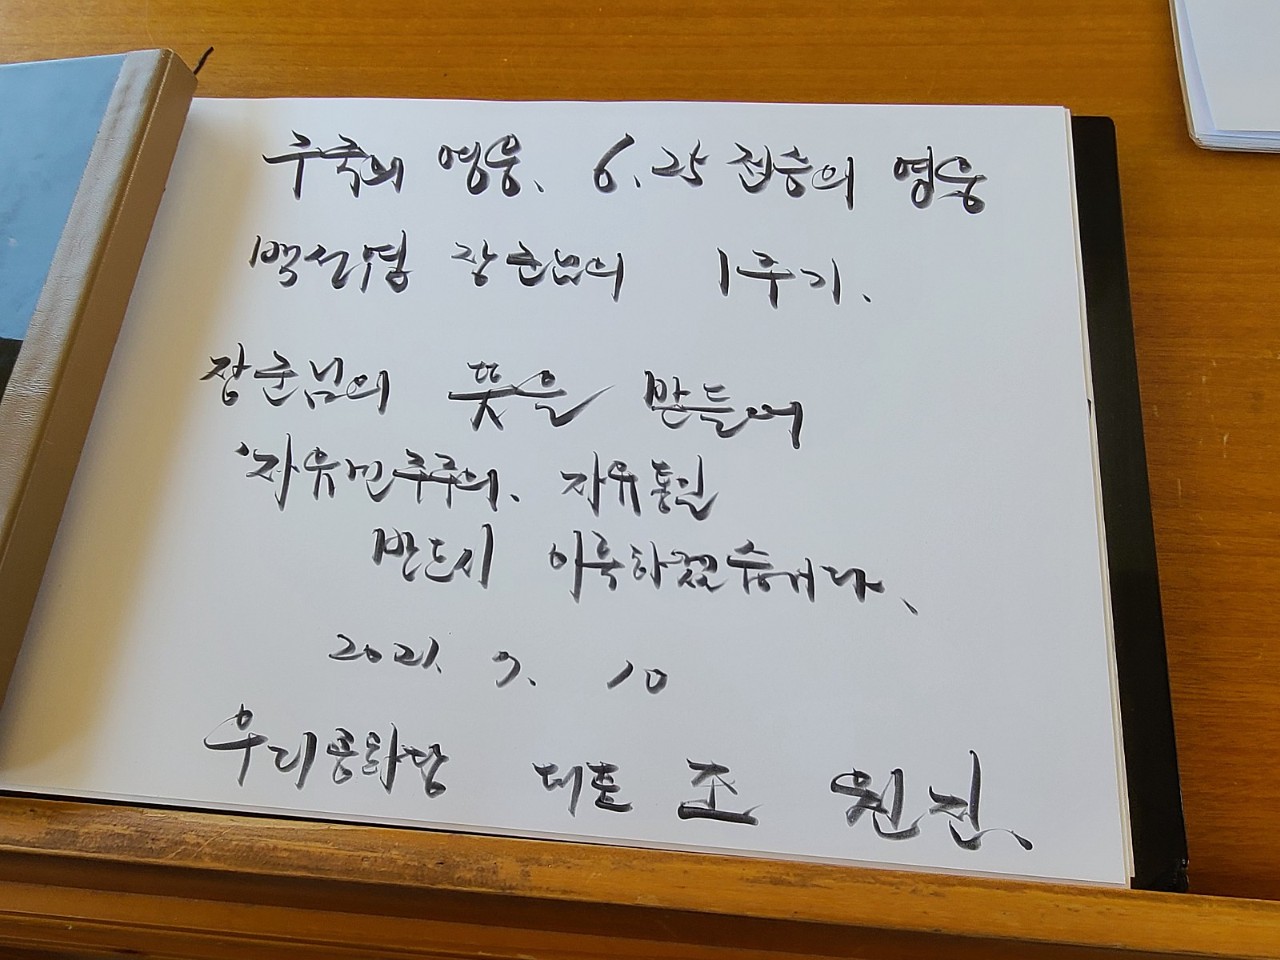 구국의 영웅. 6.25 전승의 영웅
백선엽 장군님의 1주기.
장군님의 뜻을 받들어
자유민주주의. 자유통일
반드시 이룩하겠습니다.
2021. 7. 10
우리공화당 대표 조원진.